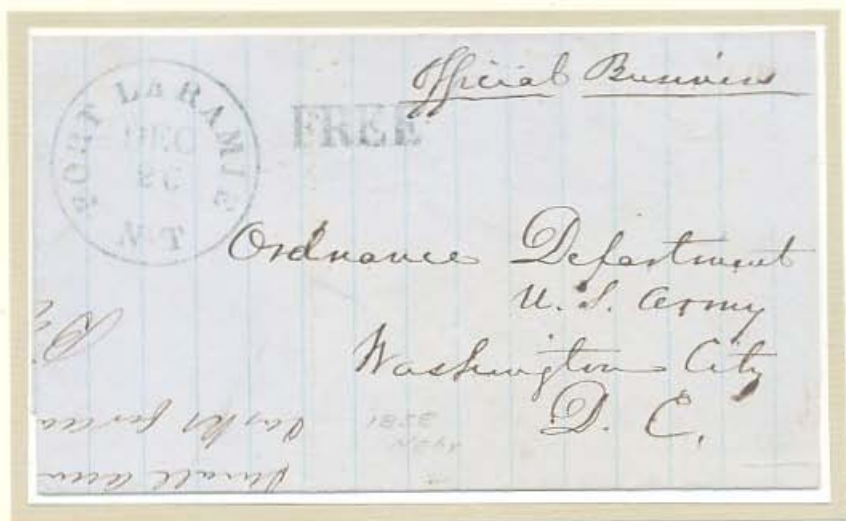 Official Business
FORT LARAMIE
DEC
N.T
FREE
Ordnance Department
U. S. Army
Washington City
D. C.
3281
small